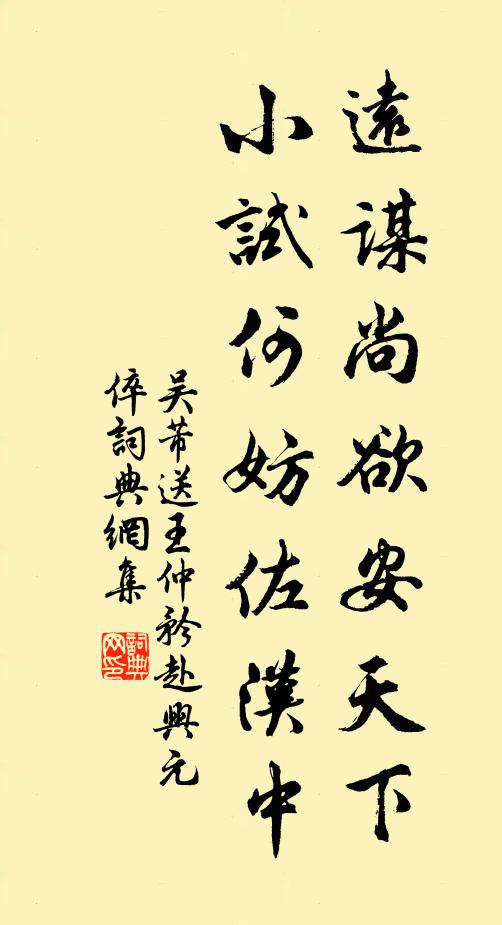 遠謀尚欲安天下
小試何妨佐漢中
吴芾送王仲矜赴興元
倅詞典網集